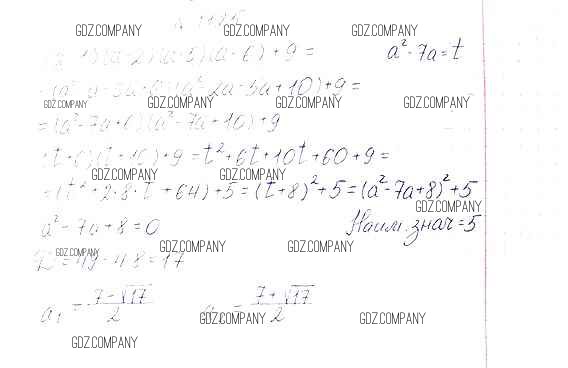 GDZ.COMPANY GDZ.COMPANY GDZ.COMPANY
(a-2)(a-5)(a-6)+9= a²-7a=t
(a²-2a-5a+10)+9=
GDZ.COMPANY GDZ.COMPANY GDZ.COMPANY GDZ.COMPANY
=(a²-7a+6)(a²-7a+10)+9
(t+6)(t+10)+9=t²+6t+10t+60+9=
GDZ.COMPANY GDZ.COMPANY
=(t²+2·8·t+64)+5=(t+8)²+5=(a²-7a+8)²+5
GDZ.COMPANY
a²-7a+8=0 Наим. знач=5
GDZ.COMPANY GDZ.COMPANY GDZ.COMPANY
=17
a₁=7-√17/2 7+√17/2
GDZ.COMPANY GDZ.COMPANY
GDZ.COMPANY